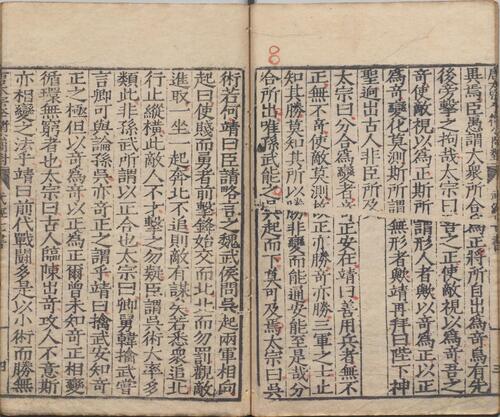 異焉臣愚謂大衆所合爲正將所自出爲奇烏有先
後旁擊之拘哉太宗曰吾之正使敵視以爲奇吾之
奇使敵視以爲正斯所謂形人者歟以奇爲正以正
爲奇變化莫測斯所謂無形者歟靖再拜曰陛下神
聖逈出古人非臣所及
太宗曰分合爲變者奇正安在靖曰善用兵者無不
正無不奇使敵莫測正亦勝奇亦勝三軍之士止
知其勝莫知其所以勝非變而能通安能至是哉分
合所出唯孫武能之吳起而下莫可及焉太宗曰吳
術若何靖曰臣請略言之魏武侯問吳起兩軍相向
起曰使賤而勇者前擊鋒始交而北北而勿罰觀敵
進取一坐一起奔北不追則敵有謀矣若悉衆追北
行止縱橫此敵人不才擊之勿疑臣謂吳術大率多
類此非孫武所謂以正合也太宗曰卿舅韓擒武嘗
言卿可與論孫吳亦奇正之謂乎靖曰擒武安知奇
正之極但以奇爲奇以正爲正爾曾未知奇正相變
循環無窮者也太宗曰古人臨陳出奇攻人不意斯
亦相變之法乎靖曰前代戰鬭多是以小術而勝無